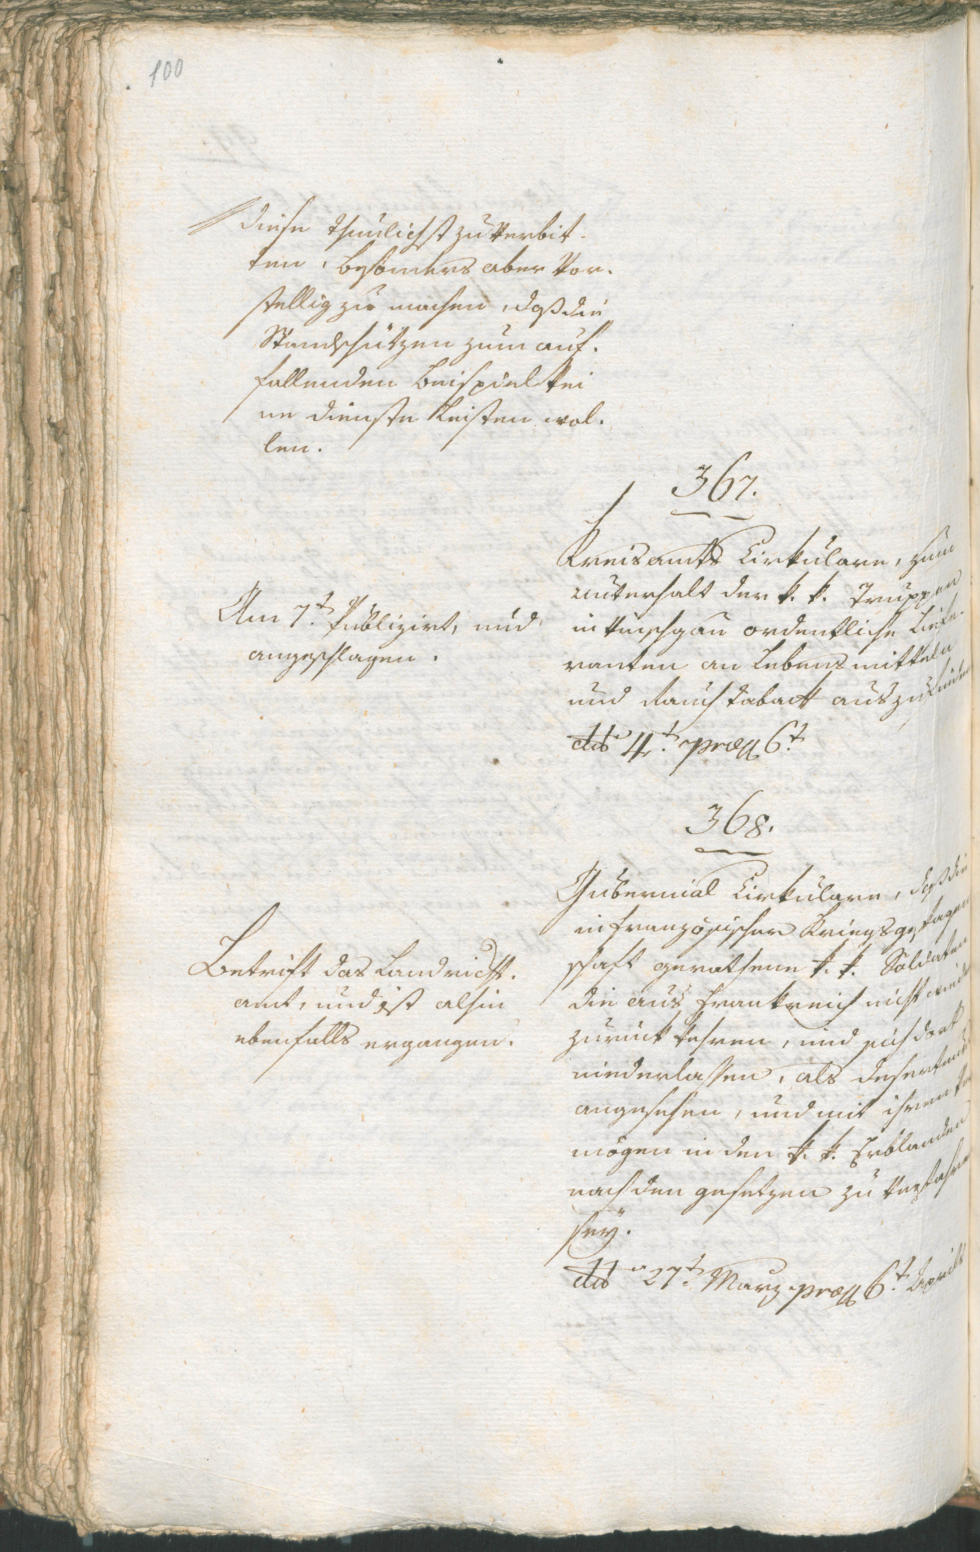 100
diese thunlichst zu verbit-
ten, besonders aber vor-
stellig zu machen, daß die
Standschützen zum auf-
fallenden Beispiel kei
ne Dienste leisten wol-
len.
367.
Kreisamts Cirkulare, zum
unterhalt der k. k. Truppen
in Vinschgau ordentliche Liefe-
ranten an Lebensmitteln
und Rauchtaback auszu
ddo 4t. præs 6t
Am 7t. Publizirt, und
angeschlagen.
368.
Gubernial Cirkulare, daß die
in französischer Kriegsgefangen
schaft gerathene k. k. Soldaten
die aus Frankreich nicht
zurück kehren, und sich dort
niederlassen, als Deserteurs
angesehen, und mit ihrem Ver
mögen in den k. k. Erblanden
nach den Gesetzen zu verfahren
sey.
ddo 27t. Marz præs 6t. Aprils
Betrift das Landricht-
amt, und ist alhin
ebenfalls ergangen.